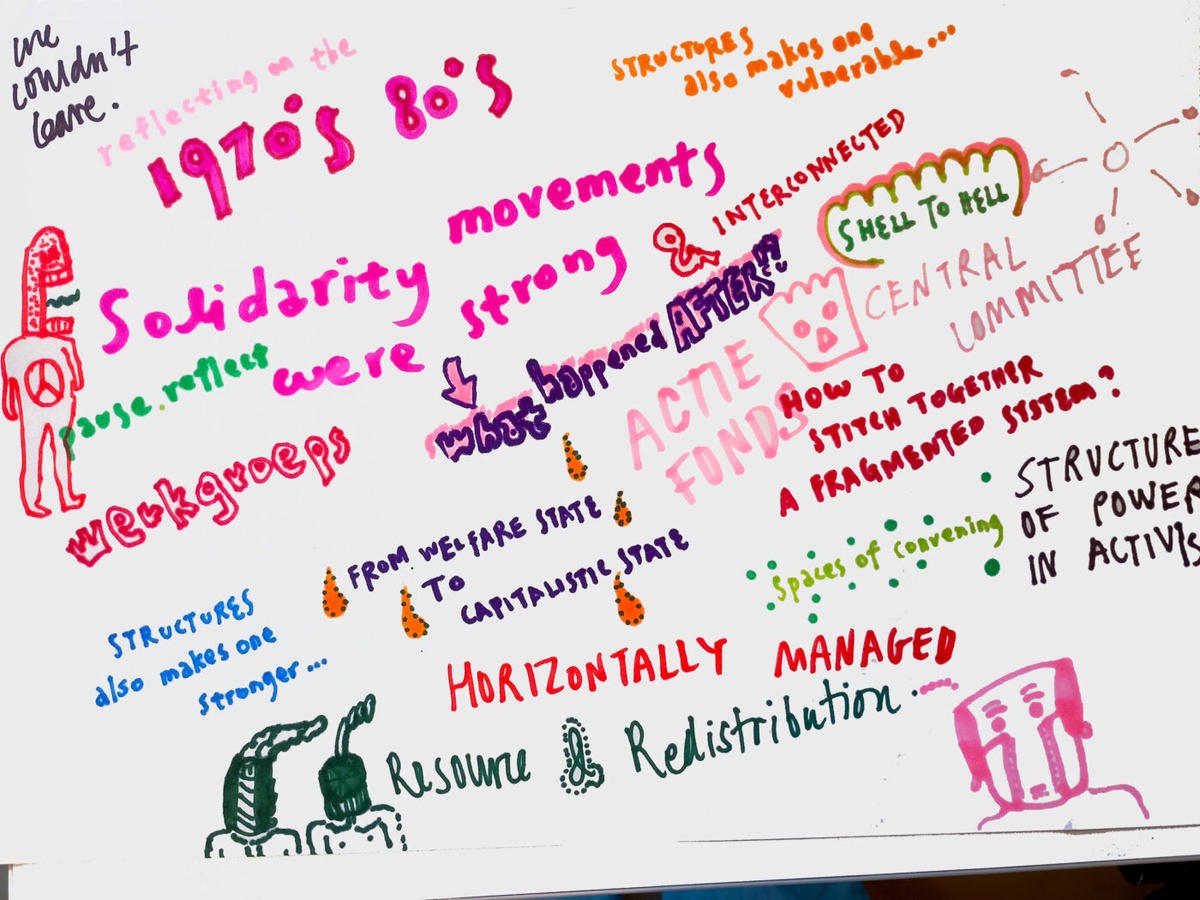 we
couldn't
leave.
reflecting on the
1970's 80's
STRUCTURES
also makes one
vulnerable...
Solidarity movements
were strong
& INTERCONNECTED
SHELL TO HELL
pause. reflect
what happened AFTER!?
CENTRAL
COMMITTEE
ACTIE
FONDS
HOW TO
STITCH TOGETHER
A FRAGMENTED SYSTEM?
werkgroeps
FROM WELFARE STATE
TO
CAPITALISTIC STATE
Spaces of convening
STRUCTURE
OF POWER
IN ACTIVIS
STRUCTURES
also makes one
stronger...
HORIZONTALLY MANAGED
Resource & Redistribution